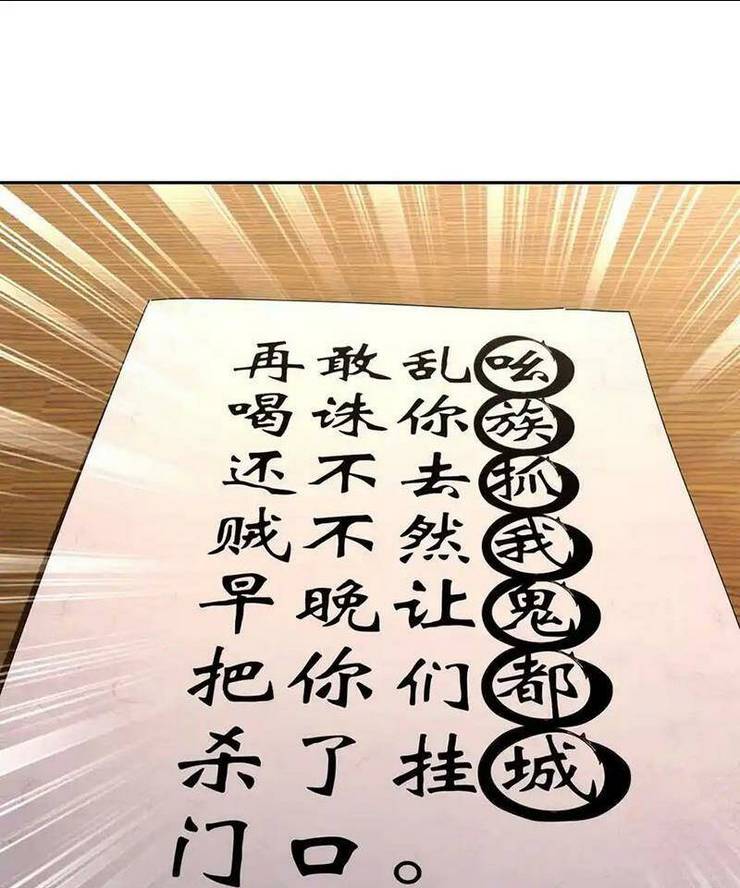 再敢乱吆
喝诛你族
还不去抓
贼不然我
早晚让鬼
把你们都
杀了挂城
门口。